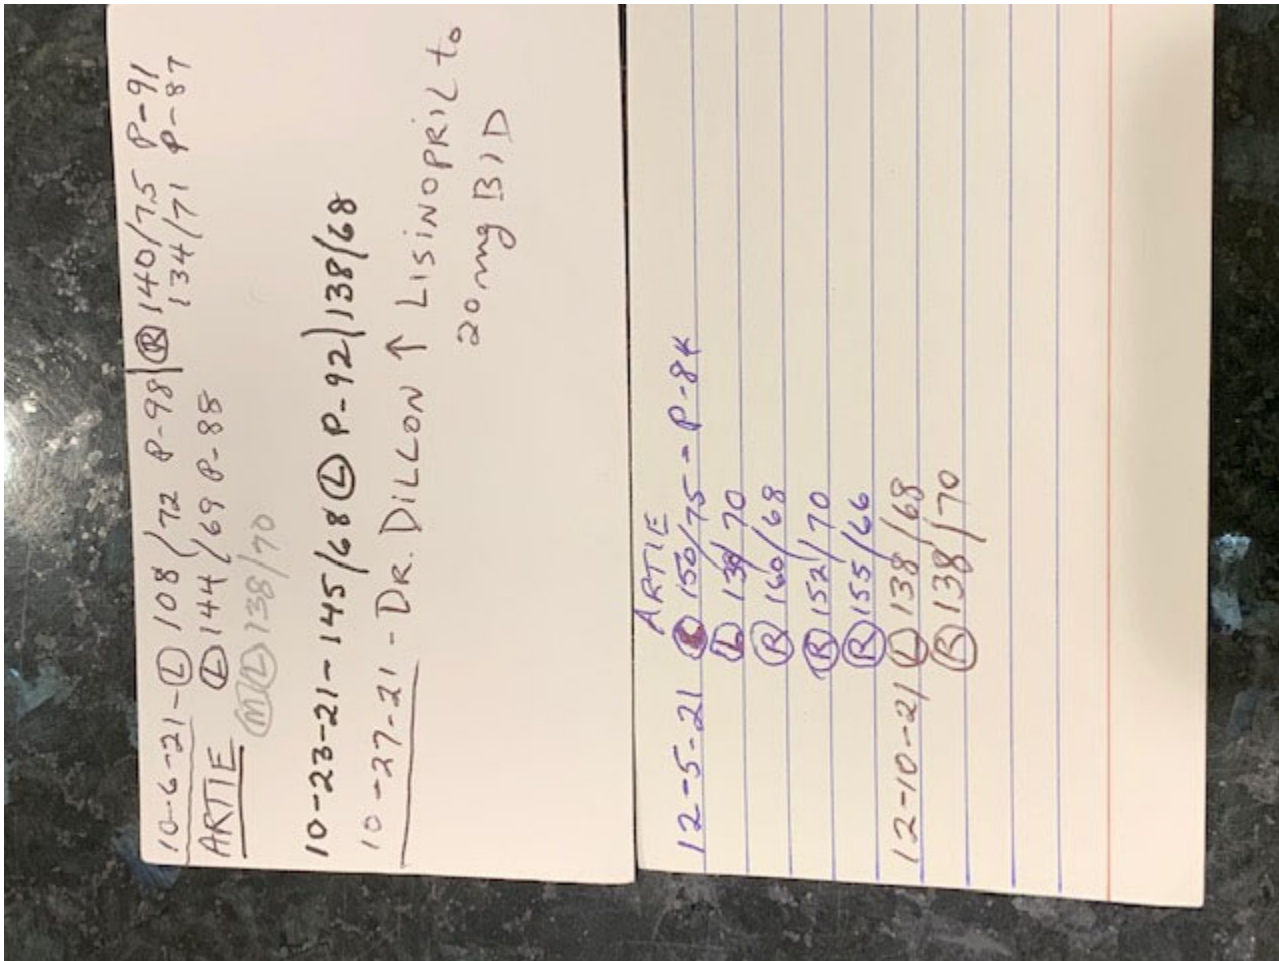 10-6-21-Ⓛ 108/72 P-98 | Ⓡ 140/75 P-91
Ⓛ 144/69 P-88 134/71 P-87
ARTIE
Ⓜ Ⓛ 138/70
10-23-21-145/68 Ⓛ P-92 | 138/68
10-27-21-DR. DiLLON ↑ LISINOPRIL to
20 mg BID
ARTIE
12-5-21 Ⓛ 150/75 - P-84
Ⓛ 139/70
Ⓡ 160/68
Ⓡ 152/70
Ⓡ 155/66
12-10-21 Ⓛ 138/68
Ⓡ 138/70